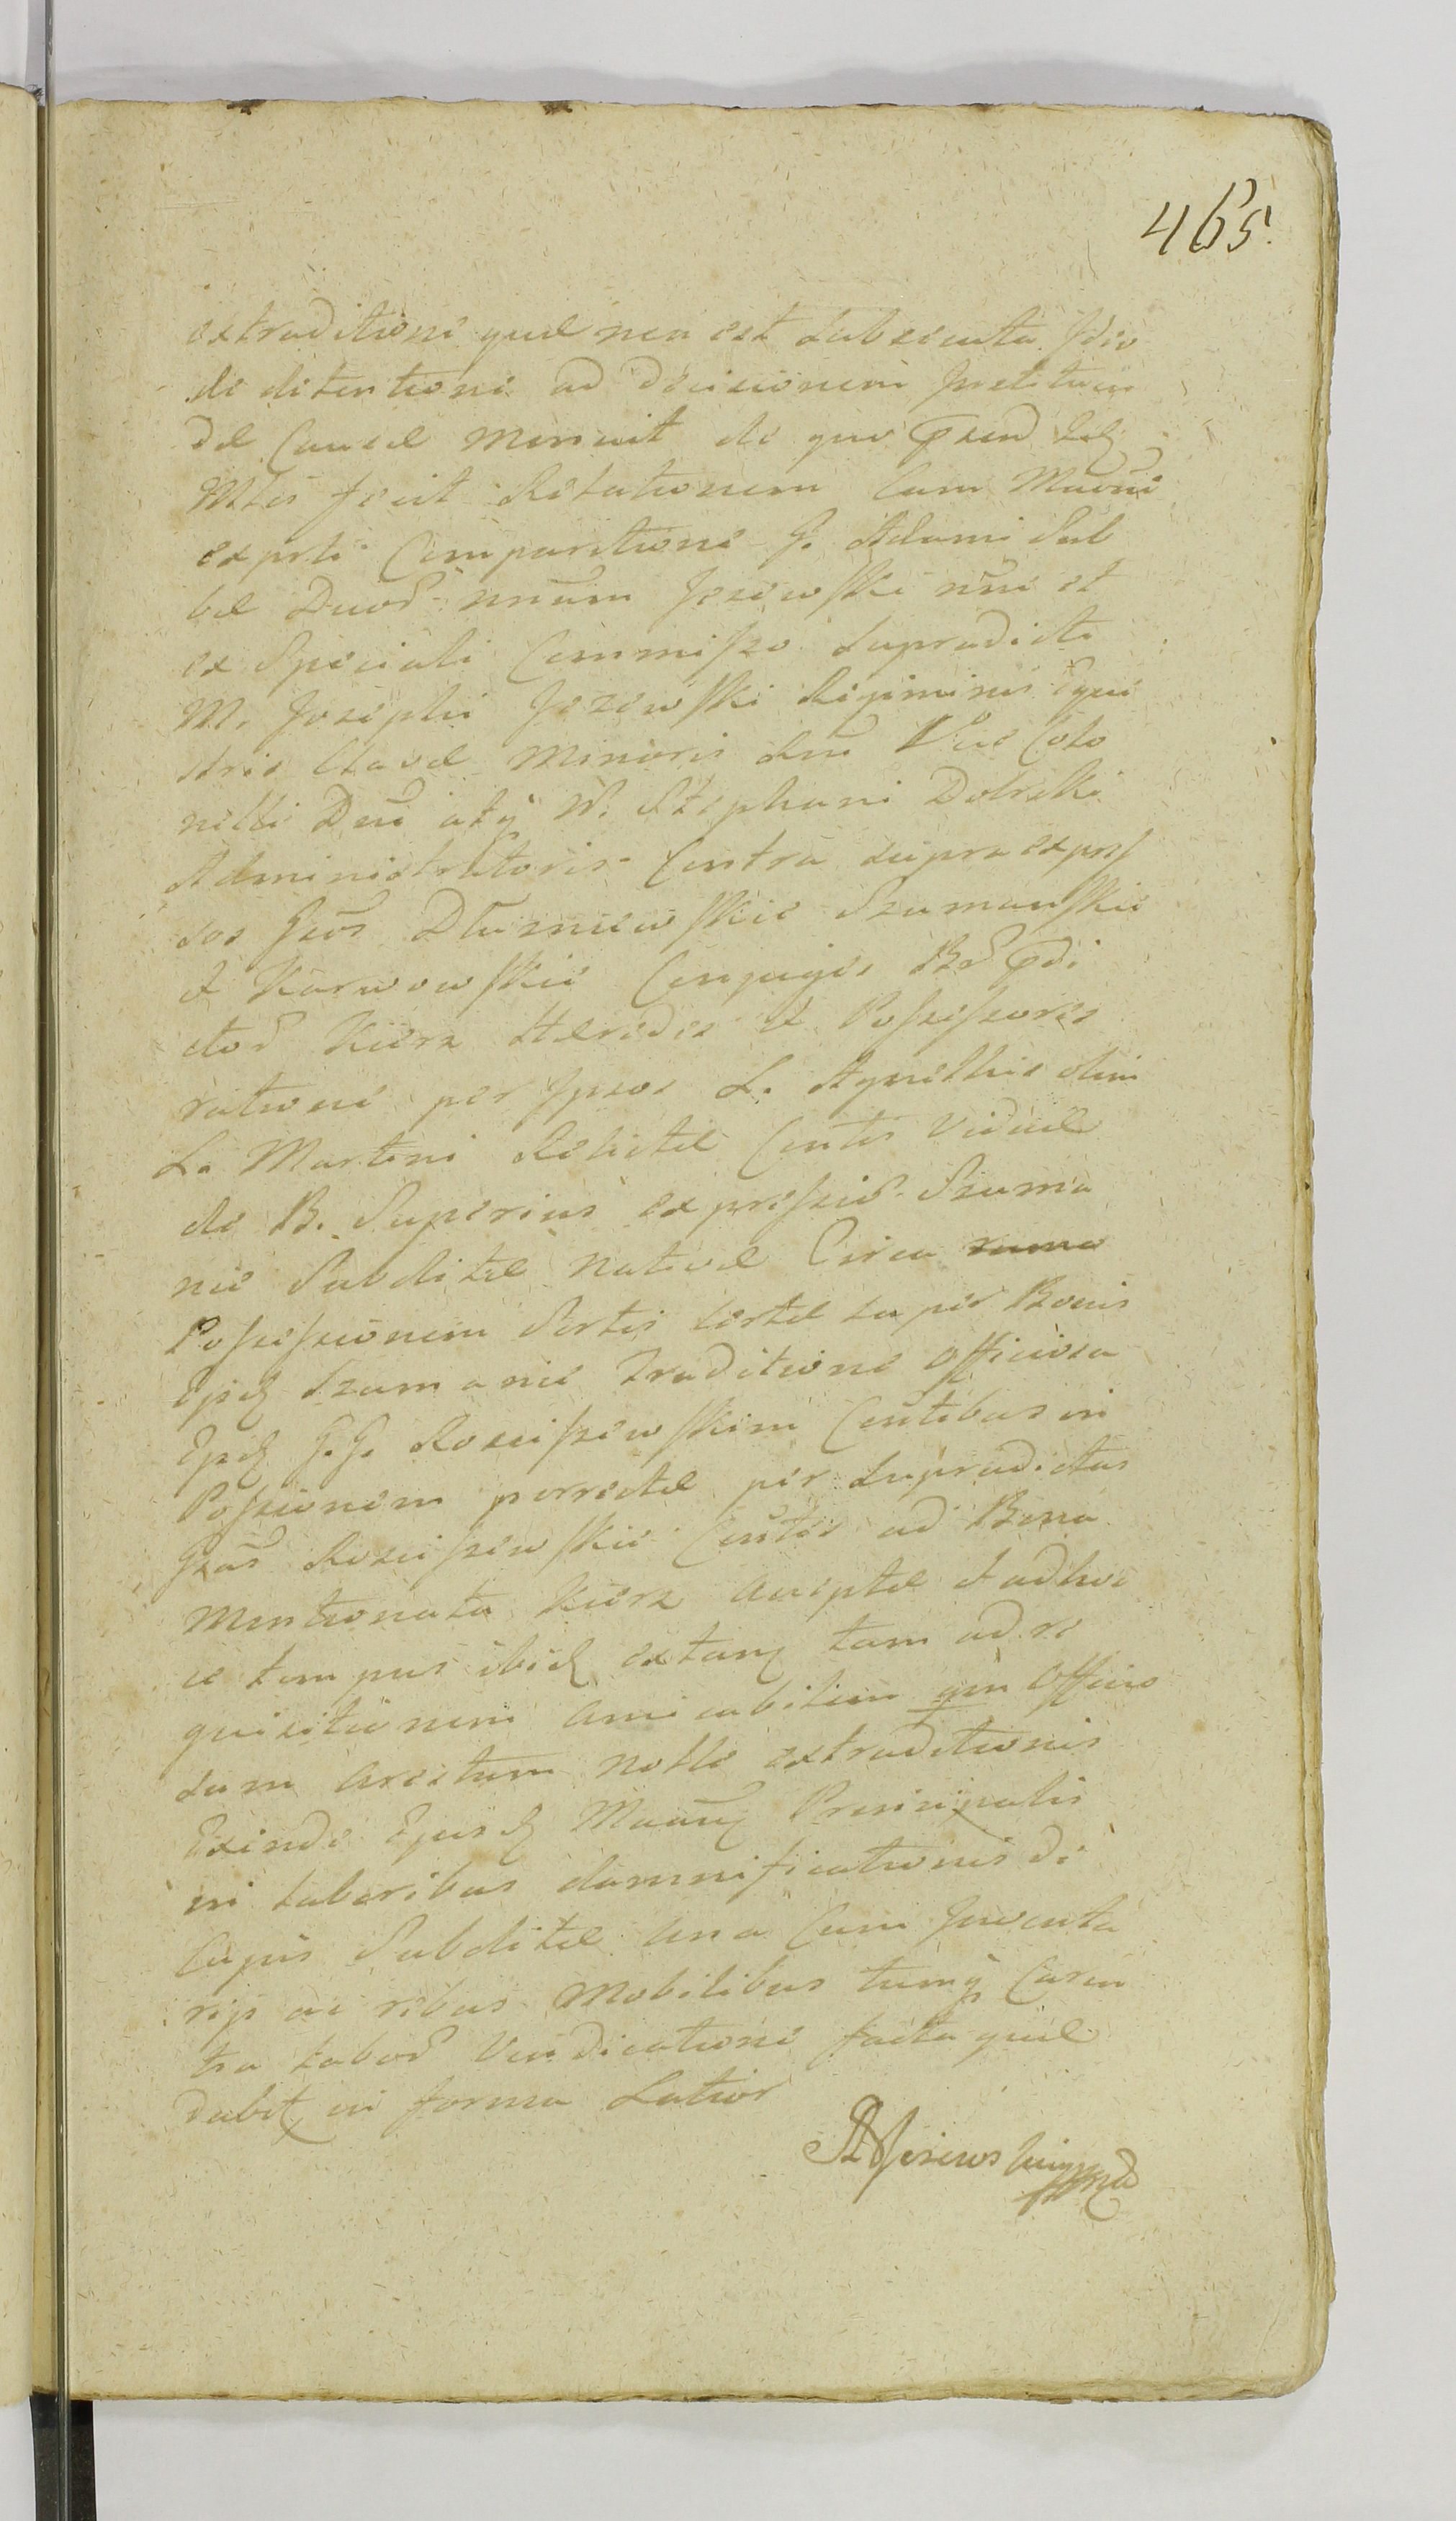 465.
extraditione quæ non est subsecuta Ideo
de detentione ad decisionem Instituen
dæ Causæ monuit de quo præsend
Mtis fecit Relationem Cum Maoni
exprti Comparitione G. Adami Sal
bæ Duor nnum Jezewski nni et
ex Speciali Commisso Supradicti
M. Josephi Jezewski Regiminis Eque
stris Clavæ Minoris Vice Colo
nelli Dni atq N. Stephani Dobrski
Administratoris Contra supra expres
sos Gsos Dłuzniewskie Szumanskie
et Karwowskie Conjuges Bor prdi
ctor Kiera Hæredes et Possessores
ratione per Ipsos L. Agnethis olim
L. Martini Relictæ Contis Viduæ
de B. Superius expressis Szuma
nie Subditæ nativæ Circa
Possessionem Sortis certæ super Bonis
Ejsd Szumanie Traditione Officiosa
Ejsd G.G. Rosciszewskim Contibus in
Possionem porrectæ per Supradictus
Gsos Rosciszewskie Contes ad Bona
Mentionata Kiera acceptæ et adhuc
ce tempus ibid extang tam ad re
quisitionem amicabilem qm Officio
sam arestum nolle extraditionis
Exinde Ejusd Maang Principalis
in laboribus damnificationis de
Cujus Subditæ una Cum Inventa
rijs ac rebus Mobilibus tumq Caren
tia labor Vindicatione facta quæ
dabit in forma Latior